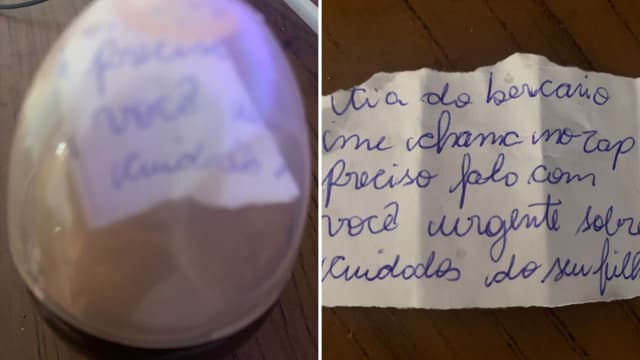 Preciso
você u
cuidados
tia do bercario
me chama no zap
Preciso falo com
você urgente sobre
cuidados do seu filh